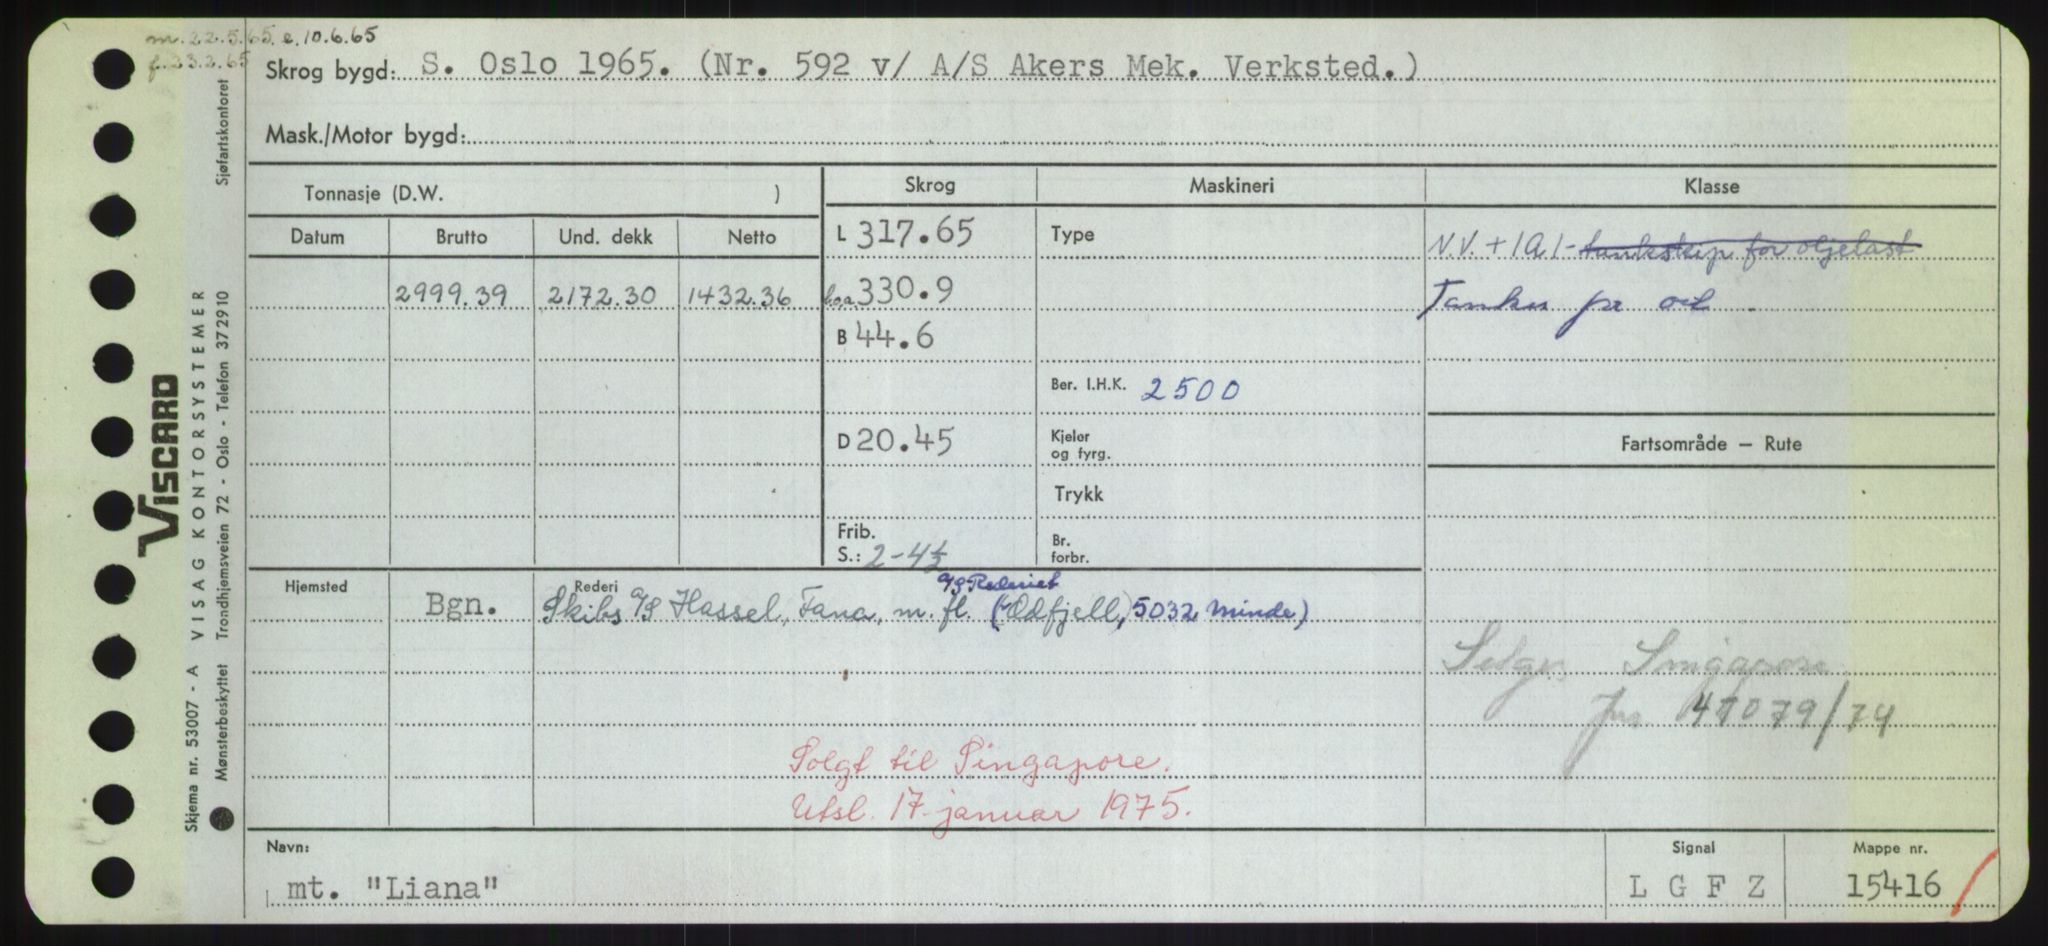 m. 22.5.65. e. 10.6.65
f. 23.2.65
Skrog bygd: S. Oslo 1965. (Nr. 592 v/ A/S Akers Mek. Verksted.)
Mask./Motor bygd:
Tonnasje (D.W. )
Skrog
Maskineri
Klasse
Datum
Brutto
Und. dekk
Netto
2999.39
2172.30
1432.36
L 317.65
l.o.a 330.9
B 44.6
D 20.45
Frib.
S.: 2-4½
Type
Ber. I.H.K. 2500
Kjeler
og fyrg.
Trykk
Br.
forbr.
N.V. + 1A1- tankskip for oljelast
Tanker for oil
Fartsområde — Rute
Selges Singapore
Jnr 47079/74
Hjemsted
Bgn.
Rederi
A/S Rederiet
Skibs A/S Hassel, Fana, m. fl. (Odfjell), 5032 Minde)
Solgt til Singapore.
Utsl. 17. januar 1975.
Navn:
mt. "Liana"
Signal
L G F Z
Mappe nr.
15416
VISCARD
Skjema nr. 53007 - A VISAG KONTORSYSTEMER
Mønsterbeskyttet Trondhjemsveien 72 - Oslo - Telefon 372910
Sjøfartskontoret